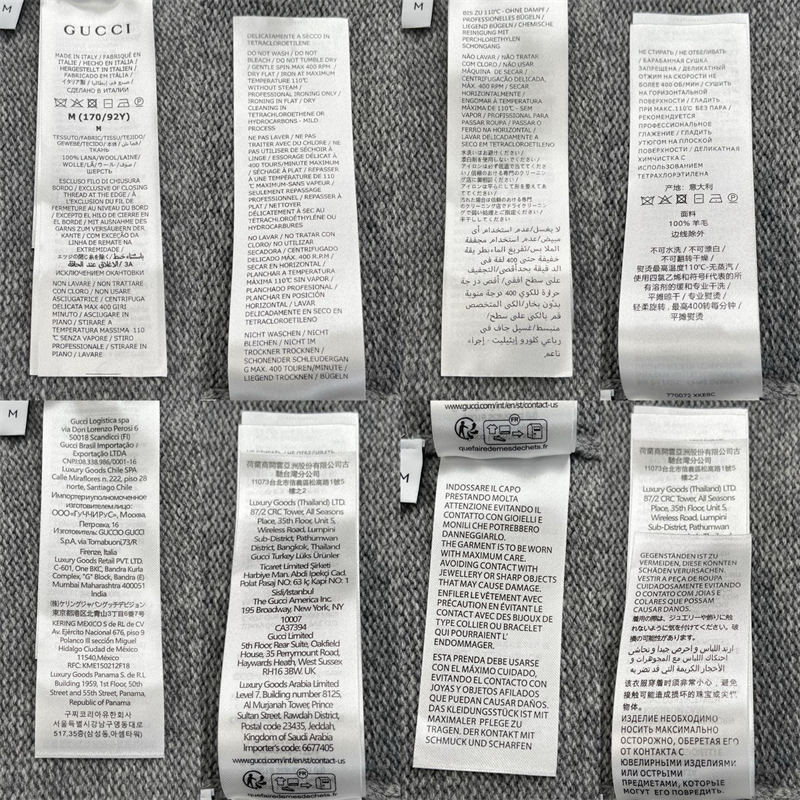 M
GUCCI
MADE IN ITALY / FABRIQUÉ EN
ITALIE / HECHO EN ITALIA /
HERGESTELLT IN ITALIEN /
FABRICADO EM ITÁLIA /
イタリア製 / صنع في إيطاليا /
СДЕЛАНО В ИТАЛИИ
M (170/92Y)
M
TESSUTO/FABRIC/TISSU/TEJIDO/
GEWEBE/TECIDO/本体/قماش/
ТКАНЬ
100% LANA/WOOL/LAINE/
WOLLE/LÃ/ウール/صوف/
ШЕРСТЬ
ESCLUSO FILO DI CHIUSURA
BORDO / EXCLUSIVE OF CLOSING
THREAD AT THE EDGE / À
L'EXCLUSION DU FIL DE
FERMETURE AU NIVEAU DU BORD
/ EXCEPTO EL HILO DE CIERRE EN
EL BORDE / MIT AUSNAHME DES
GARNS ZUM VERSÄUBERN DER
KANTE / COM EXCEÇÃO DA
LINHA DE REMATE NA
EXTREMIDADE /
エッジの閉じ糸を除く /
ИСКЛЮЧЕНИЕМ ОКАНТОВКИ
NON LAVARE / NON TRATTARE
CON CLORO / NON USARE
ASCIUGATRICE / CENTRIFUGA
DELICATA MAX 400 GIRI
MINUTO / ASCIUGARE IN
PIANO / STIRARE A
TEMPERATURA MASSIMA 110
°C SENZA VAPORE / STIRO
PROFESSIONALE / STIRARE IN
PIANO / LAVARE
DELICATAMENTE A SECCO IN
TETRACLOROETILENE
DO NOT WASH / DO NOT
BLEACH / DO NOT TUMBLE DRY
/ GENTLE SPIN MAX 400 RPM /
DRY FLAT / IRON AT MAXIMUM
TEMPERATURE 110°C
WITHOUT STEAM /
PROFESSIONAL IRONING ONLY
/ IRONING FLAT / DRY
CLEANING IN
TETRACHLOROETHENE OR
HYDROCARBONS - MILD
PROCESS
NE PAS LAVER / NE PAS
TRAITER AVEC DU CHLORE / NE
PAS UTILISER DE SÉCHOIR À
LINGE / ESSORAGE DÉLICAT À
400 TOURS/MINUTE MAXIMUM
/ SÉCHAGE À PLAT / REPASSER
À UNE TEMPÉRATURE DE 110
°C MAXIMUM-SANS VAPEUR /
SEULEMENT REPASSAGE
PROFESSIONNEL / REPASSER À
PLAT / NETTOYER
DÉLICATEMENT À SEC AU
TETRACHLOROÉTHYLÈNE OU
HYDROCARBURES
NO LAVAR / NO TRATAR CON
CLORO/ NO UTILIZAR
SECADORA / CENTRIFUGADO
DELICADO MÁX. 400 R.P.M /
SECAR EN HORIZONTAL /
PLANCHAR A TEMPERATURA
MÁXIMA 110°C SIN VAPOR /
PLANCHADO PROFESIONAL /
PLANCHAR EN POSICIÓN
HORIZONTAL / LAVAR
DELICADAMENTE EN SECO EN
TETRACLOROETILENO
NICHT WASCHEN / NICHT
BLEICHEN / NICHT IM
TROCKNER TROCKNEN /
SCHONENDER SCHLEUDERGAN
G MAX. 400 TOUREN/MINUTE /
LIEGEND TROCKNEN / BÜGELN
M
BIS ZU 110°C - OHNE DAMPF /
PROFESSIONELLES BÜGELN /
LIEGEND BÜGELN / CHEMISCHE
REINIGUNG MIT
PERCHLORETHYLEN
SCHONGANG
NÃO LAVAR / NÃO TRATAR
COM CLORO / NÃO USAR
MÁQUINA DE SECAR /
CENTRIFUGAÇÃO DELICADA,
MÁX. 400 RPM / SECAR
HORIZONTALMENTE /
ENGOMAR À TEMPERATURA
MÁXIMA DE 110°C - SEM
VAPOR / PROFISSIONAL PARA
PASSAR ROUPA / PASSAR O
FERRO NA HORIZONTAL /
LAVAR DELICADAMENTE A
SECO EM TETRACLOROETILENO
لا يغسل/عدم استخدام أي
مبيض/عدم استخدام مجففة
الملابس/تفريغ الماءبطريقة
خفيفة حتى 400 لفة في
الدقيقة بحد أقصى/التجفيف
على سطح أفقي/أقصى درجة
حرارة للكوي 400 درجة مئوية
بدون بخار/بالكي المتخصص
قم بالكي على سطح
منبسط/غسيل جاف في
رباعي كلورو إيثيليت - إجراء
ناعم.
M
НЕ СТИРАТЬ / НЕ ОТБЕЛИВАТЬ
/ БАРАБАННАЯ СУШКА
ЗАПРЕЩЕНА / ДЕЛИКАТНЫЙ
ОТЖИМ НА СКОРОСТИ НЕ
БОЛЕЕ 400 ОБ/МИН / СУШИТЬ
НА ГОРИЗОНТАЛЬНОЙ
ПОВЕРХНОСТИ / ГЛАДИТЬ
ПРИ МАКС.110°C БЕЗ ПАРА /
РЕКОМЕНДУЕТСЯ
ПРОФЕССИОНАЛЬНОЕ
ГЛАЖЕНИЕ / ГЛАДИТЬ
УТЮГОМ НА ПЛОСКОЙ
ПОВЕРХНОСТИ / ДЕЛИКАТНАЯ
ХИМЧИСТКА С
ИСПОЛЬЗОВАНИЕМ
ТЕТРАХЛОРЭТИЛЕНА
产地: 意大利
面料
100% 羊毛
边线除外
不可水洗 / 不可漂白 /
不可翻转干燥 /
熨烫最高温度110°C-无蒸汽 /
使用四氯乙烯和符号F代表的所
有溶剂的缓和专业干洗 /
平摊晾干 / 专业熨烫 /
轻柔旋转, 最高400转每分钟 /
平摊熨烫
770072 XKE8C
M
Gucci Logistica spa
via Don Lorenzo Perosi 6
50018 Scandicci (FI)
Gucci Brasil Importação e
Exportação LTDA
CNPJ:08.338.986/0001-16
Luxury Goods Chile SPA
Calle Miraflores n. 222, piso 28
norte, Santiago Chile
Импортируполномоченное
изготовителем лицо:
ООО«ГУЧЧИРус», Москва,
Петровка, 16
Изготовитель: GUCCIO GUCCI
S.p.A, via Tornabuoni,73/R
Firenze, Italia
Luxury Goods Retail PVT. LTD.
C-601, One BKC, Bandra Kurla
Complex, "G" Block, Bandra (E)
Mumbai Maharashtra 400051
India
(株)ケリングジャパングッチディビジョン
東京都港区北青山3丁目6番7号
KERING MEXICO S de RL de CV
Av. Ejército Nacional 676, piso 9
Polanco III sección Miguel
Hidalgo Ciudad de México
11540,México
RFC: KME150212F18
Luxury Goods Panama S. de R.L
Building 1959, 1st Floor, 50th
Street and 55th Street, Panama,
Republic of Panama
구찌코리아유한회사
서울특별시강남구영동대로
517,35층(삼성동,아셈타워)
荷蘭商開雲亞洲股份有限公司古
馳台灣分公司
11073台北市信義區松高路1號5
樓之2
Luxury Goods (Thailand) LTD.
87/2 CRC Tower, All Seasons
Place, 35th Floor, Unit 5,
Wireless Road, Lumpini
Sub-District, Pathumwan
District, Bangkok, Thailand
Gucci Turkey Lüks Ürünler
Ticaret Limited Şirketi
Harbiye Man. Abdi İpekçi Cad.
Polat Pasaj NO: 63 İç Kapı NO: 1
Sisli/Istanbul
The Gucci America Inc.
195 Broadway, New York, NY
10007
CA37394
Gucci Limited
5th Floor, Rear Suite, Oakfield
House, 35 Perrymount Road,
Haywards Heath, West Sussex
RH16 3BW. UK
Luxury Goods Arabia Limited
Level 7. Building number 8125,
Al Murjanah Tower, Prince
Sultan Street. Rawdah District,
Postal code 23435, Jeddah,
Kingdom of Saudi Arabia
Importer's code: 6677405
www.gucci.com/int/en/st/contact-us
FR
quefairedemesdechets.fr
M
www.gucci.com/int/en/st/contact-us
FR
quefairedemesdechets.fr
INDOSSARE IL CAPO
PRESTANDO MOLTA
ATTENZIONE EVITANDO IL
CONTATTO CON GIOIELLI E
MONILI CHE POTREBBERO
DANNEGGIARLO.
THE GARMENT IS TO BE WORN
WITH MAXIMUM CARE.
AVOIDING CONTACT WITH
JEWELLERY OR SHARP OBJECTS
THAT MAY CAUSE DAMAGE.
ENFILER LE VÊTEMENT AVEC
PRÉCAUTION EN ÉVITANT LE
CONTACT AVEC DES BIJOUX DE
TYPE COLLIER OU BRACELET
QUI POURRAIENT L'
ENDOMMAGER.
ESTA PRENDA DEBE USARSE
CON EL MÁXIMO CUIDADO,
EVITANDO EL CONTACTO CON
JOYAS Y OBJETOS AFILADOS
QUE PUEDAN CAUSAR DAÑOS.
DAS KLEIDUNGSSTÜCK IST MIT
MAXIMALER PFLEGE ZU
TRAGEN. DER KONTAKT MIT
SCHMUCK UND SCHARFEN
荷蘭商開雲亞洲股份有限公司古
馳台灣分公司
11073台北市信義區松高路1號5
樓之2
Luxury Goods (Thailand) LTD.
87/2 CRC Tower, All Seasons
Place, 35th Floor, Unit 5,
Wireless Road, Lumpini
Sub-District, Pathumwan
GEGENSTÄNDEN IST ZU
VERMEIDEN, DIESE KÖNNTEN
SCHÄDEN VERURSACHEN.
VESTIR A PEÇA DE ROUPA
CUIDADOSAMENTE EVITANDO
O CONTATO COM JOIAS E
COLARES QUE POSSAM
CAUSAR DANOS.
着用の際は、ジュエリーや飾りに触
れないように気を付けてください。破
損の可能性があります。
ارتد اللباس و احرص جيدا و تحاشى
احتكاك اللباس مع المجوهرات و
الأحجار الكريمة التي قد تتلفه
该衣服穿着时须非常小心, 避免
接触可能造成损坏的珠宝或尖锐
物体。
ИЗДЕЛИЕ НЕОБХОДИМО
НОСИТЬ МАКСИМАЛЬНО
ОСТОРОЖНО, ОБЕРЕГАЯ ЕГО
ОТ КОНТАКТА С
ЮВЕЛИРНЫМИ ИЗДЕЛИЯМИ
ИЛИ ОСТРЫМИ
ПРЕДМЕТАМИ, КОТОРЫЕ
МОГУТ ЕГО ПОВРЕДИТЬ.